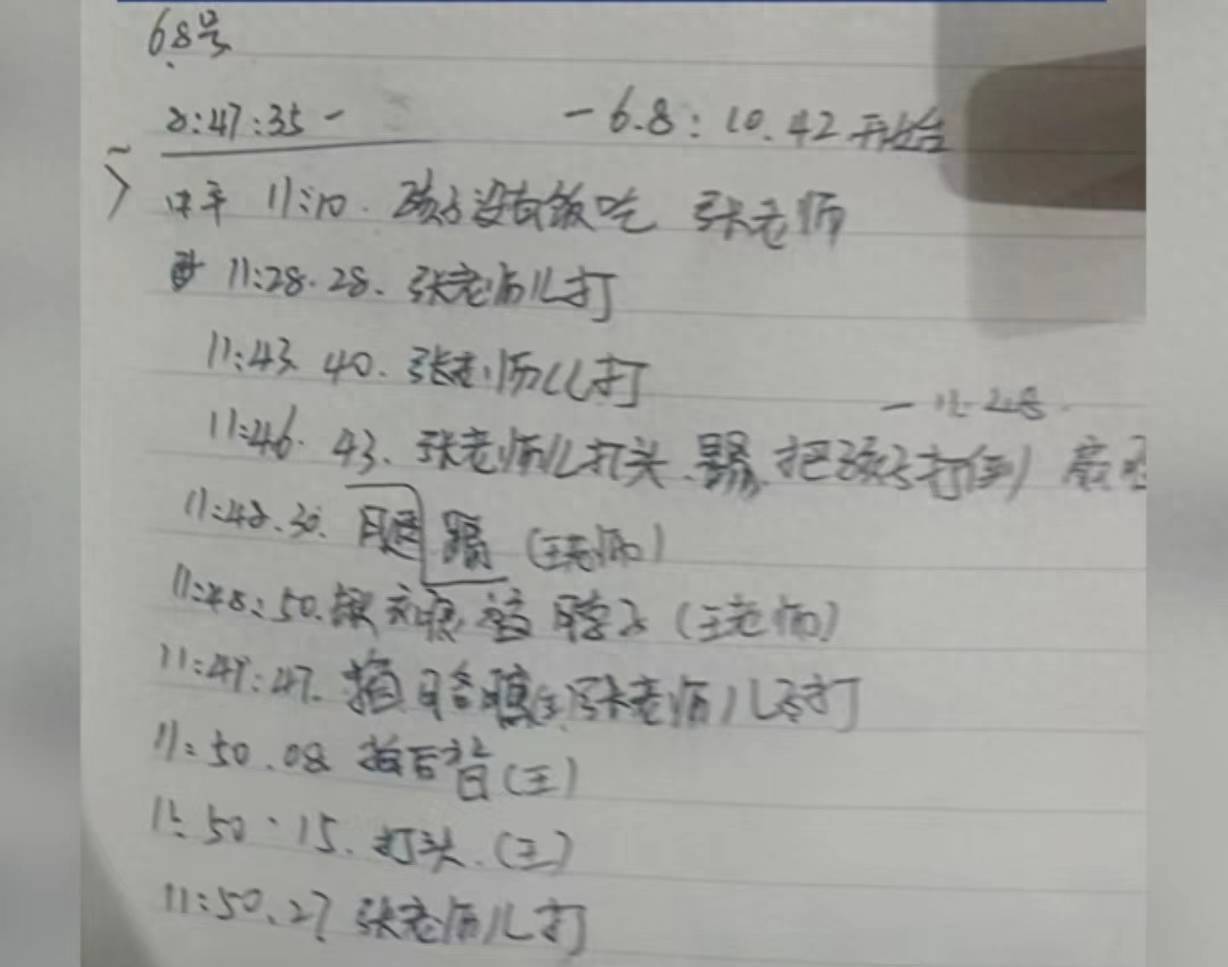 6.8号
8:47:35 - - 6.8: 10.42 开始
中午 11:10. 孩子没有饭吃 张老师
11:28.28. 张老师儿打
11:43 40. 张老师儿打
11:46. 43. 张老师儿打头. 踢. 把孩子打倒
11:48.30. 腿踢 (王老师)
11:48:50. (王老师)
11:49:47. 张老师儿打
11:50.08 后背(王)
11:50.15. 打头.(王)
11:50.27 张老师儿打